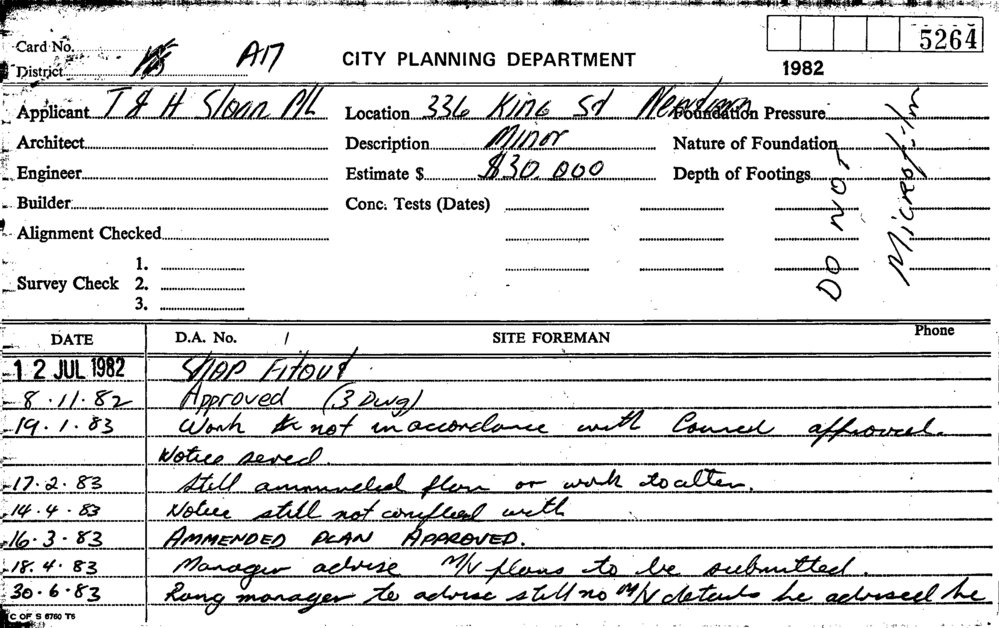 5264
Card No.
District A17
CITY PLANNING DEPARTMENT
1982
Applicant T & H Sloan P/L Location 336 King St Newtown Foundation Pressure
Architect Description Minor Nature of Foundation
Engineer Estimate $ $30,000 Depth of Footings
Builder Conc. Tests (Dates)
Alignment Checked
DO NOT
Microfilm
Survey Check 1.
2.
3.
DATE D.A. No. / SITE FOREMAN Phone
12 JUL 1982 SHOP Fitout
8.11.82 Approved (3 Dwg)
19.1.83 Work not in accordance with Council approval.
Notice served.
17.2.83 Still plan or work to alter.
14.4.83 Notice still not complied with
16.3.83 AMMENDED PLAN APPROVED.
18.4.83 Manager advise M/V plans to be submitted.
30.6.83 Rang manager to advise still no M/V details he advised he
C OF S 6760 T5